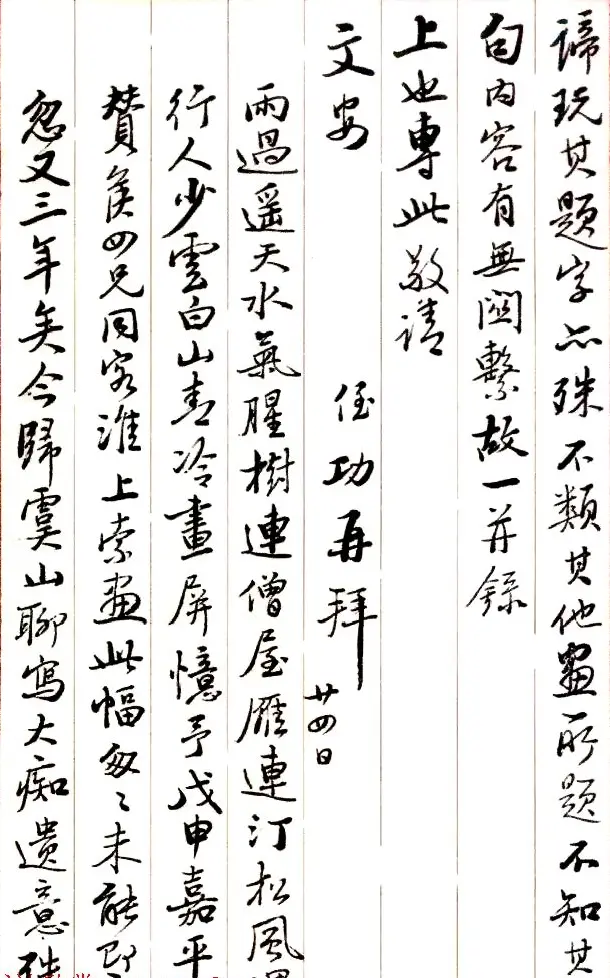 諦玩其題字亦殊不類其他畫所題不知其
句内容有無關繫故一并錄
上也專此敬請
文安
侄功再拜
廿四日
雨過遥天水氣腥樹連僧屋雁連汀松風
行人少雲白山青冷畫屏憶予戊申嘉平
贊侯四兄同客淮上索畫此幅匆匆未能即
忽又三年矣今歸虞山聊寫大癡遺意殊